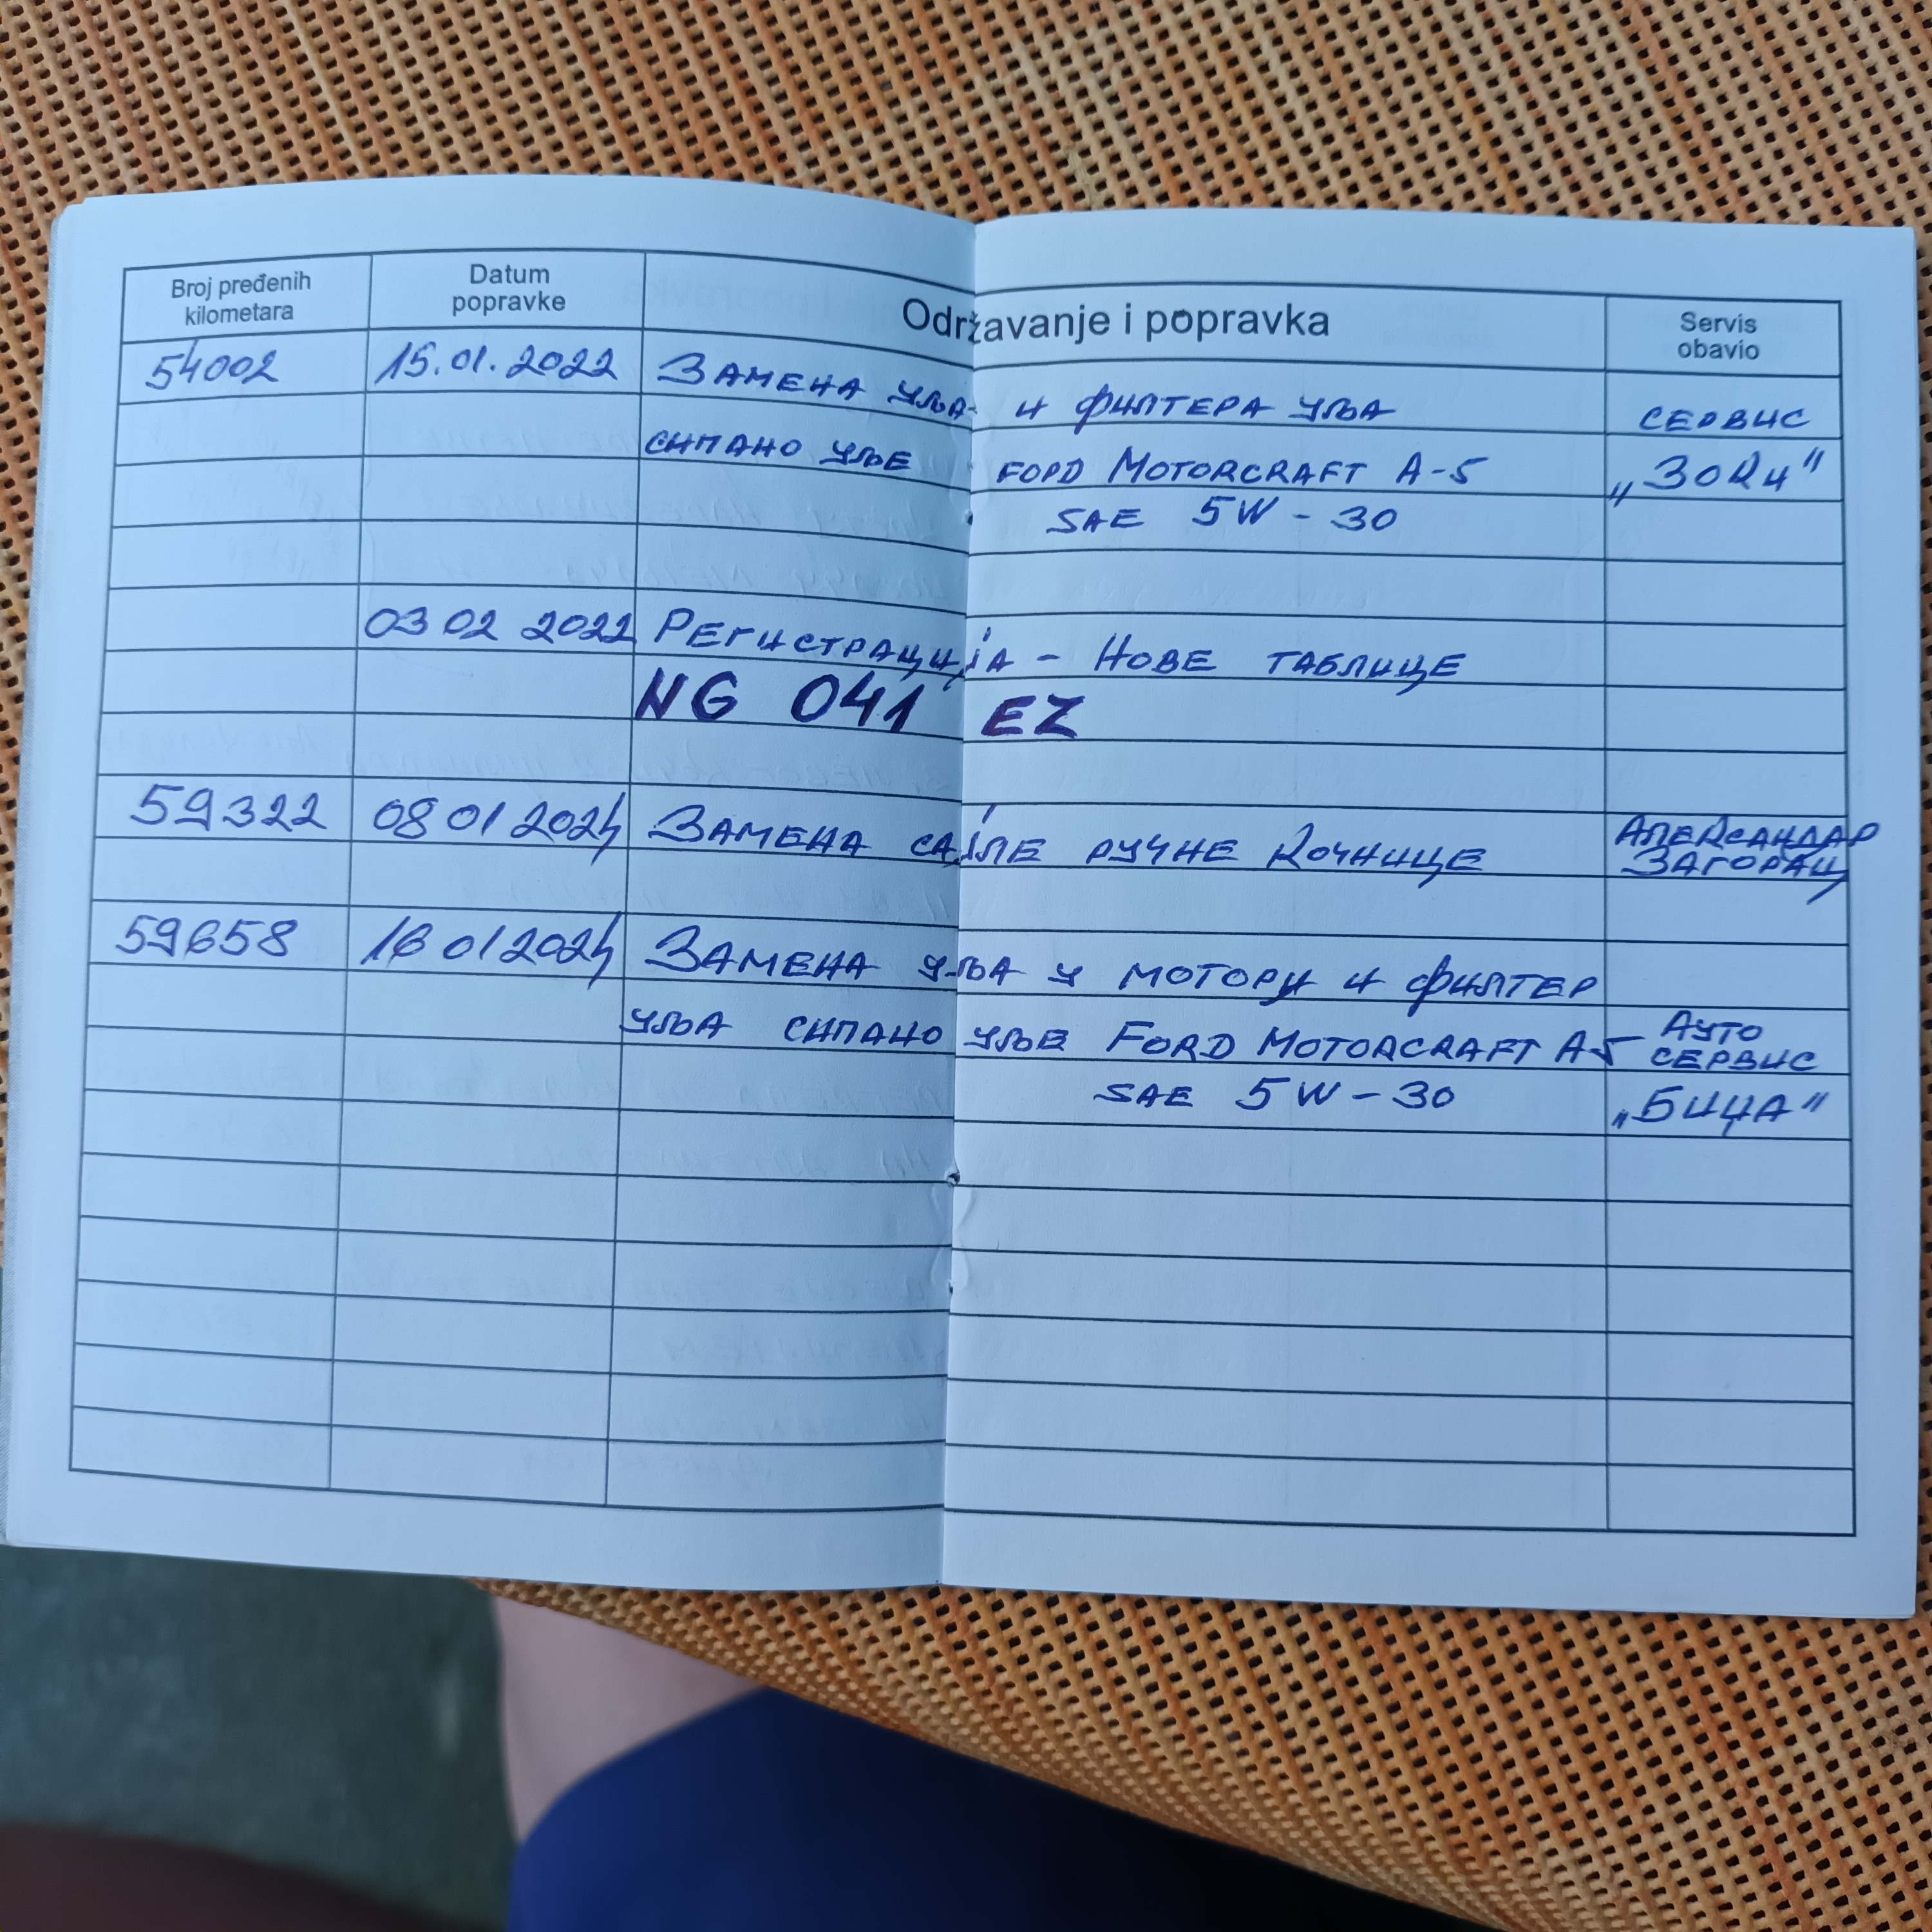 Broj pređenih kilometara Datum popravke Održavanje i popravka Servis obavio
54002 15.01.2022 ЗАМЕНА УЉА И ФИЛТЕРА УЉА СЕРВИС
СИПАНО УЉЕ FORD MOTORCRAFT A-5 „ЗОКИ"
SAE 5W-30
03 02 2022 РЕГИСТРАЦИЈА - НОВЕ ТАБЛИЦЕ
NG 041 EZ
59322 08 01 2024 ЗАМЕНА САЈЛЕ РУЧНЕ КОЧНИЦЕ АЛЕКСАНДАР ЗАГОРАЦ
59658 16 01 2024 ЗАМЕНА УЉА У МОТОРУ И ФИЛТЕР
УЉА СИПАНО УЉЕ FORD MOTORCRAFT A-5 АУТО СЕРВИС
SAE 5W-30 „БИЦА"